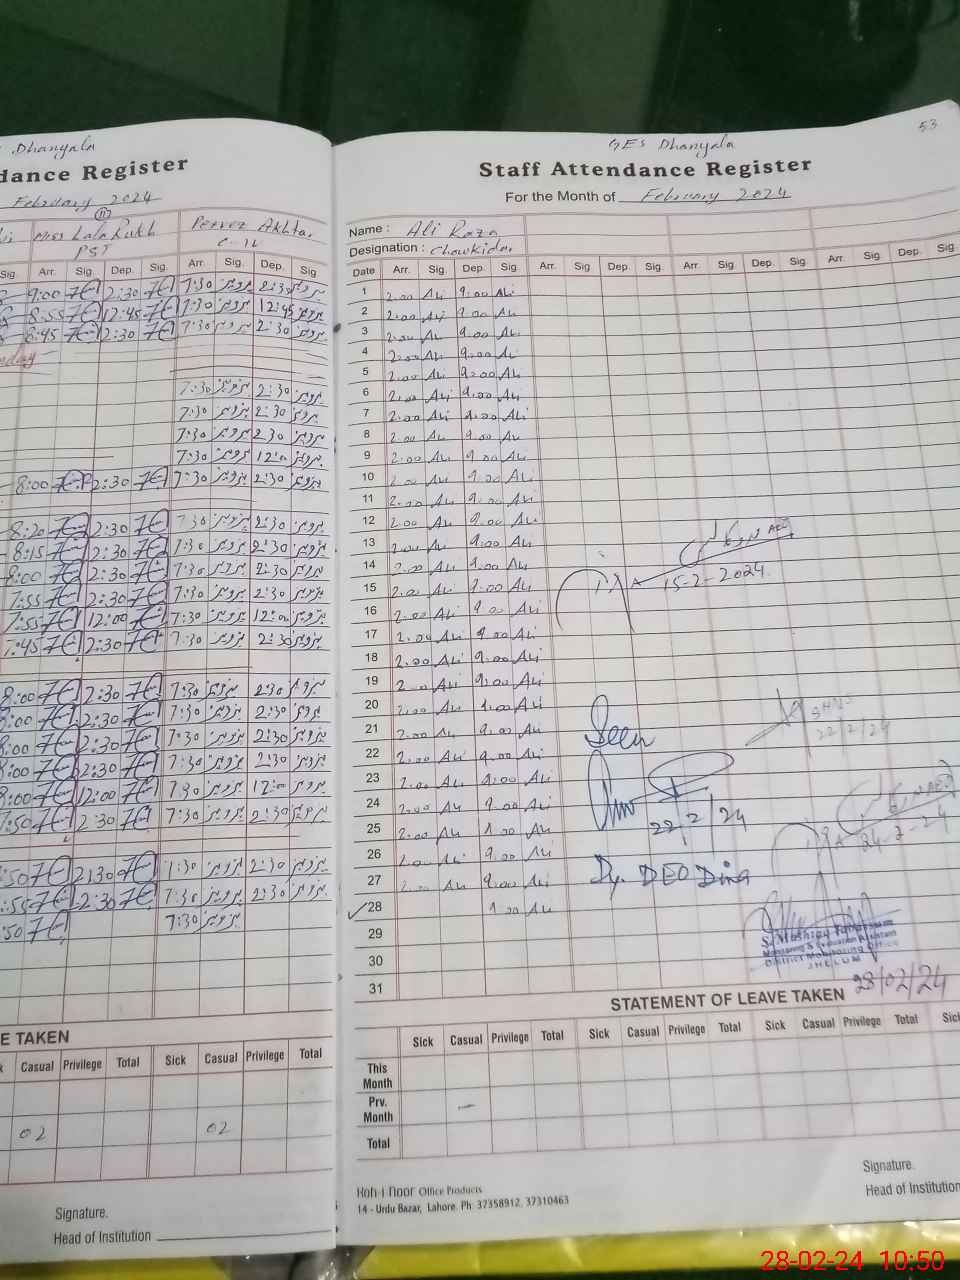 Dhanyala
dance Register
February 2024
11
Miss Lala Rukh
PST
Pervez Akhtar
C-IV
Sig. Arr. Sig. Dep. Sig. Arr. Sig. Dep. Sig
9:00 2:30 7:30 پرویز 2:30 پرویز
8:55 12:45 7:30 پرویز 12:45 پرویز
8:45 2:30 7:30 پرویز 2:30 پرویز
nday
7:30 پرویز 2:30 پرویز
7:30 پرویز 2:30 پرویز
7:30 پرویز 2:30 پرویز
7:30 پرویز 12:00 پرویز
8:00 2:30 7:30 پرویز 2:30 پرویز
8:20 2:30 7:30 پرویز 2:30 پرویز
8:15 2:30 7:30 پرویز 2:30 پرویز
8:00 2:30 7:30 پرویز 2:30 پرویز
7:55 2:30 7:30 پرویز 2:30 پرویز
7:55 12:00 7:30 پرویز 12:00 پرویز
7:45 2:30 7:30 پرویز 2:30 پرویز
8:00 2:30 7:30 پرویز 2:30 پرویز
8:00 2:30 7:30 پرویز 2:30 پرویز
8:00 2:30 7:30 پرویز 2:30 پرویز
8:00 2:30 7:30 پرویز 2:30 پرویز
8:00 12:00 7:30 پرویز 12:00 پرویز
7:50 2:30 7:30 پرویز 2:30 پرویز
:50 2:30 7:30 پرویز 2:30 پرویز
:55 2:30 7:30 پرویز 2:30 پرویز
:50 7:30 پرویز
E TAKEN
k Casual Privilege Total Sick Casual Privilege Total
02 02
Signature.
Head of Institution
53
GES Dhanyala
Staff Attendance Register
For the Month of February 2024
Name : Ali Raza
Designation : Chowkidar
Date Arr. Sig. Dep. Sig. Arr. Sig Dep. Sig. Arr. Sig. Dep. Sig. Arr. Sig. Dep. Sig.
1 2.00 Ali 9.00 Ali
2 2.00 Ali 9.00 Ali
3 2.00 Ali 9.00 Ali
4 2.00 Ali 9.00 Ali
5 2.00 Ali 9.00 Ali
6 2.00 Ali 9.00 Ali
7 2.00 Ali 9.00 Ali
8 2.00 Ali 9.00 Ali
9 2.00 Ali 9.00 Ali
10 2.00 Ali 9.00 Ali
11 2.00 Ali 9.00 Ali
12 2.00 Ali 9.00 Ali
13 2.00 Ali 9.00 Ali
14 2.00 Ali 9.00 Ali
15 2.00 Ali 9.00 Ali 15-2-2024
16 2.00 Ali 9.00 Ali
17 2.00 Ali 9.00 Ali
18 2.00 Ali 9.00 Ali
19 2.00 Ali 9.00 Ali
20 2.00 Ali 9.00 Ali
21 2.00 Ali 9.00 Ali Seen 22/2/24
22 2.00 Ali 9.00 Ali
23 2.00 Ali 9.00 Ali
24 2.00 Ali 9.00 Ali 22/2/24
25 2.00 Ali 9.00 Ali
26 2.00 Ali 9.00 Ali
27 2.00 Ali 9.00 Ali Dy. DEO Dina
28 9.00 Ali
29
Monitoring & Evaluation Assistant
30
District Monitoring Office
JHELUM
31
28/02/24
STATEMENT OF LEAVE TAKEN
Sick Casual Privilege Total Sick Casual Privilege Total Sick Casual Privilege Total Sick
This Month
Prv. Month –
Total
Koh-i-noor Office Products
14 - Urdu Bazar, Lahore. Ph: 37358912, 37310463
Signature.
Head of Institution
28-02-24 10:50